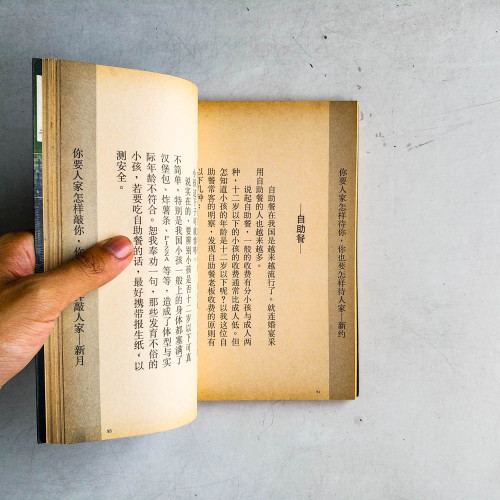 你要人家怎样待你，你也要怎样待人家——新约
——自助餐——
自助餐在我国是越来越流行了。就连婚宴采
用自助餐的人也越来越多。
说起自助餐，一般的收费有分小孩与成人两
种，十二岁以下的小孩的收费通常比成人低。但
怎知道小孩的年龄是十二岁以下呢？以我这位自
助餐常客的明察，发现自助餐老板收费的原则有
以下几种：
94
说实在的，要辨别小孩是否十二岁以下可真
不简单，特别是我国小孩一般上的身体都塞满了
汉堡包、炸薯条、Pizza等等，造成了体型与实
际年龄不符合。恕我奉劝一句，那些发育不俗的
小孩，若要吃自助餐的话，最好携带报生纸，以
测安全。
你要人家怎样敲你，你 敲人家——新月
95